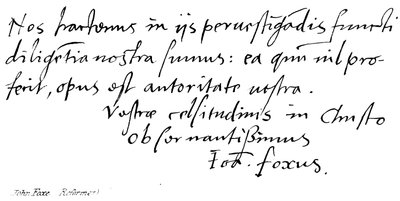 Nos hactenus in ijs peruestigādis functi
diligētia nostra sumus: ea qum̄ nil pro-
fecit, opus est autoritate vestra.
Vestræ celsitudinis in Christo
obseruantißimus
Ioh. foxus.
John Foxe Reformer